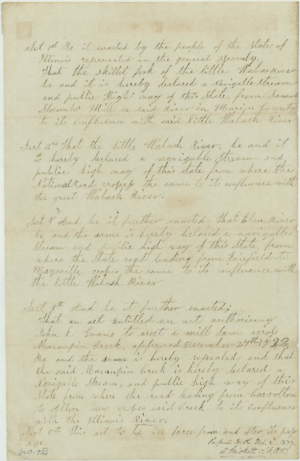 Sect 1st Be it enacted by the people of the State of
Illinois represented in the general assembly,
That the skillet fork of the little Wabash river
be and it is hereby declared a navigable stream
and public high way of this State, from
Mill on said River in Marion County
to its confluence with said little Wabash River
Sect 2nd That the little Wabash River, be and it
is hereby declared a navigable Stream and
public high way of this State from where the
National road crosses the same to its confluence with
the great Wabash River.
Sect 3d And be it further enacted that Elm River
be and the same is hereby declared a navigable
Stream and public high way of this State, from
where the State road leading from Fairfield to
Maysville crosses the same to its confluence with
the little Wabash River
Sect 4th And be it further enacted;
That an act entitled an act authorizing
John Evans to erect a mill dam across
Macoupin Creek, approved December
Be and the same is hereby repealed and that
the said Macoupin creek is hereby declared a
Navigable Stream, and public high way of this
State from where the road leading from Carrollton
to Alton now crosses said Creek to its confluence
with the Illinois River.
Sect 5th This act to be in force from and after its pass
age